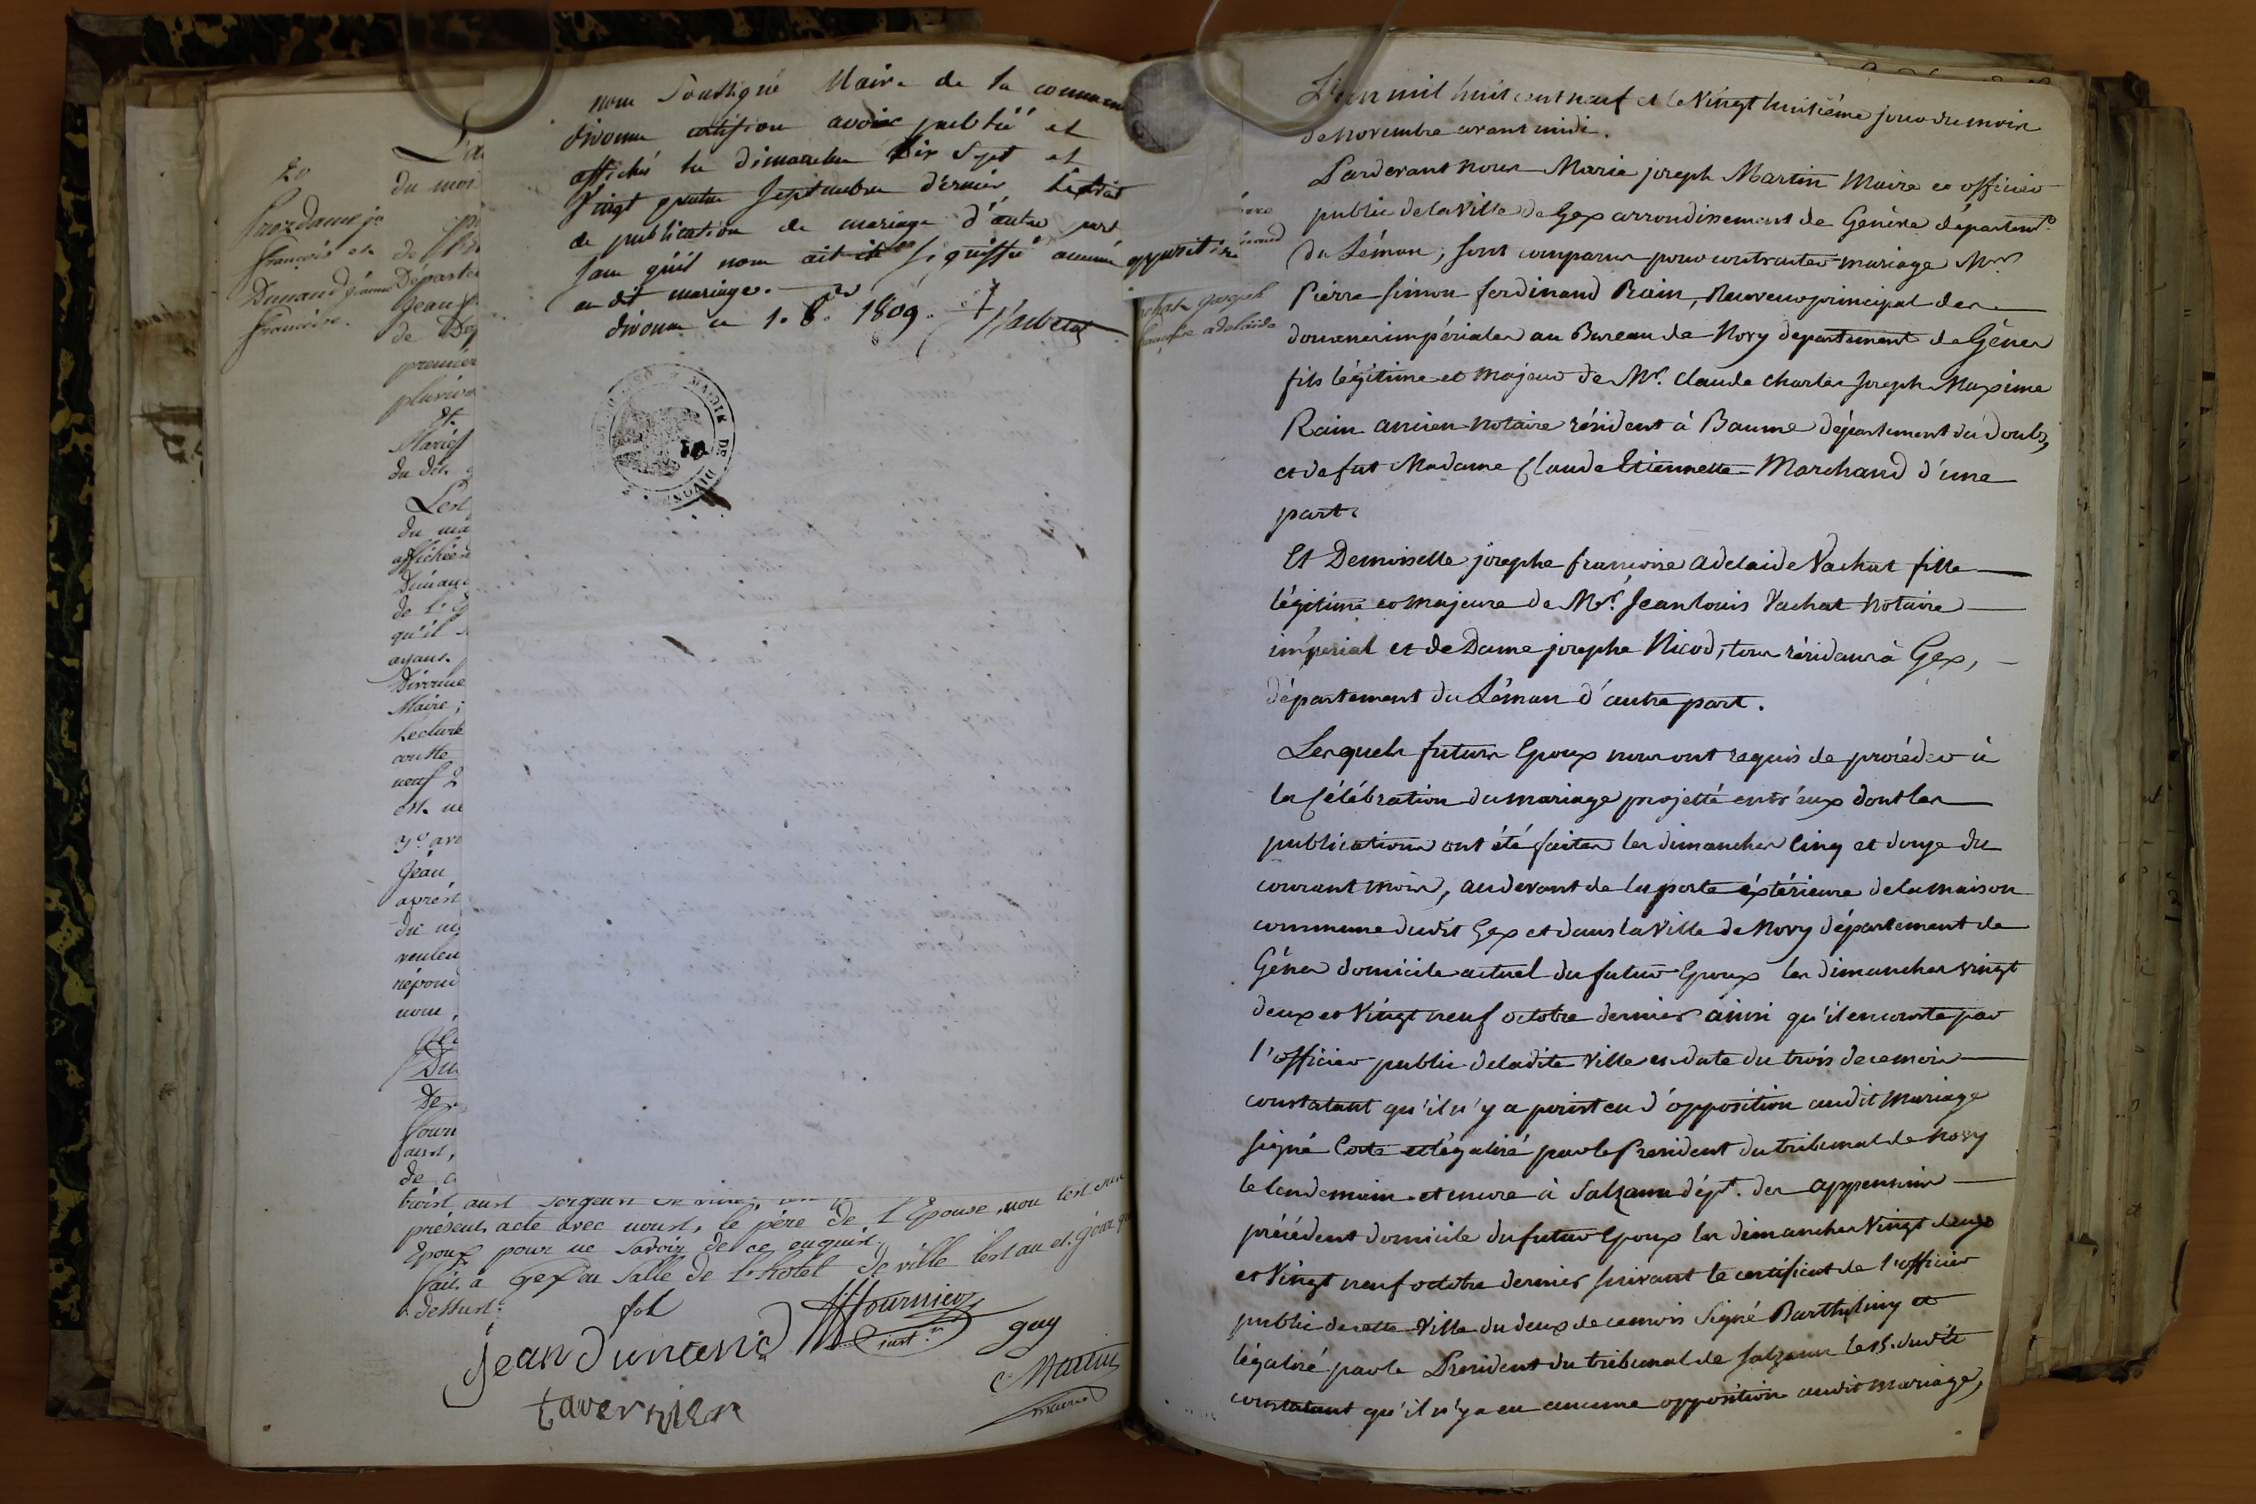 nous Soussigné Maire de la commune
divonne certifions avoir publié et
affiché les dimanches dix Sept et
Vingt quatre Septembre dernier l'extrait
de publication de mariage d'autre part
sans qu'il nous ait été signiffié aucune opposition
au dit mariage.
divonne ce 1. 8.bre 1809.
MAIRIE DE DIVONNE
20
François et
Dunand Jeanne
Françoise.
L'an
du moi
de
Départe
Jean
de
premier
pluvio
et
Mariés
du dit
Lesd
du ma
affichées
Dunan
de l'é
qu'il
ayant
Divonne
Maire;
Lecture
contte
neuf
est né
Jean
après
du
veulen
répond
nous,
Du
De
Fourn
ausst,
de
troist aust Sergent de ville,
présent acte avec noust, le père de l'Epouse, non lest
Epoux pour ne Savoir de ce enquist.
Fait à Gex en Salle de l'hotel de ville lest an et jour que
dessust.
fol
Jean Dunand
Fournier
inst.r
guy
Martin
maire
tavernier
Joseph
françoise adelaide
L'an mil huit cent neuf et le Vingt huitième jour du mois
de Novembre avant midi.
Pardevant Nous Marie joseph Martin Maire et officier
public de la Ville de Gex arrondissement de Genève départem.t
du Léman, sont comparus pour contracter mariage Mr.
Pierre Simon ferdinand Rain, Receveur principal des
douanes impériales au Bureau de Novy département de Gênes
fils légitime et Majeur de Mr. Claude Charles Joseph Maxime
Rain ancien Notaire résident à Baume département du doubs,
et de fut Madame Claude Etiennette Marchand d'une
part.
Et Demoiselle josephe françoise Adelaide Vachat fille
légitime et majeure de Mr. Jean louis Vachat Notaire
impérial et de Dame josephe Nicod, tous résidans à Gex,
département du Léman d'autre part.
Lesquels futurs Epoux nous ont requis de procéder à
la Célébration du mariage projetté entr'eux dont les
publications ont été faites les dimanches Cinq et douze du
courant mois, au devant de la porte éxtérieure de la maison
commune dudit Gex et dans la Ville de Novy département de
Gênes domicile actuel du futur Epoux les dimanches vingt
deux et Vingt neuf octobre dernier ainsi qu'il en conste par
l'officier public de ladite Ville en date du trois de ce mois
constatant qu'il n'y a point eu d'opposition audit Mariage
signé Coste et légalisé par le President du tribunal de Novy
le lendemain et encore à Salzanu dép.t des appennins
précédent domicile du futur Epoux les dimanches Vingt deux
et Vingt neuf octobre dernier suivant le certificat de l'officier
public de cette Ville du deux de ce mois Signé Barthelimy et
légalisé par le President du tribunal de Salzanu le 15. dudit
constatant qu'il n'y a eu aucune opposition audit Mariage,